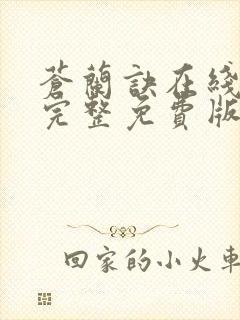 苍蘭訣在綫
完整免費版
回家的小火車